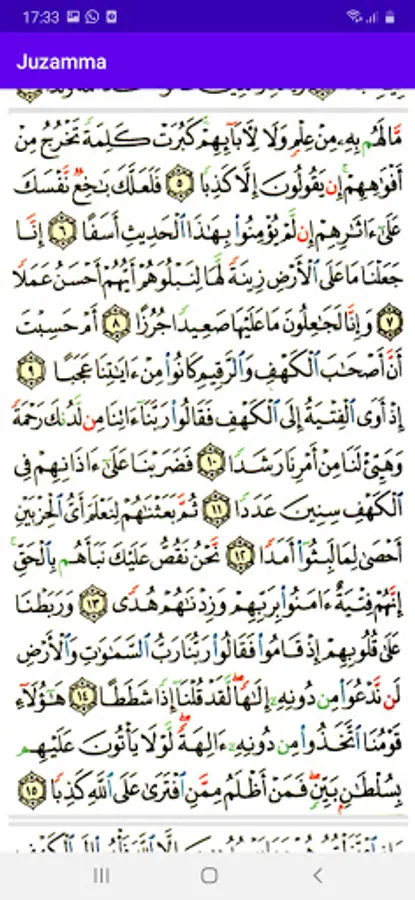 17:33
Juzamma
مَّا لَهُم بِهِۦ مِنْ عِلْمٍ وَلَا لِءَابَآئِهِمْ ۚ كَبُرَتْ كَلِمَةً تَخْرُجُ مِنْ
أَفْوَٰهِهِمْ ۚ إِن يَقُولُونَ إِلَّا كَذِبًا ٥ فَلَعَلَّكَ بَٰخِعٌ نَّفْسَكَ
عَلَىٰٓ ءَاثَٰرِهِمْ إِن لَّمْ يُؤْمِنُوا۟ بِهَٰذَا ٱلْحَدِيثِ أَسَفًا ٦ إِنَّا
جَعَلْنَا مَا عَلَى ٱلْأَرْضِ زِينَةً لَّهَا لِنَبْلُوَهُمْ أَيُّهُمْ أَحْسَنُ عَمَلًا
٧ وَإِنَّا لَجَٰعِلُونَ مَا عَلَيْهَا صَعِيدًا جُرُزًا ٨ أَمْ حَسِبْتَ
أَنَّ أَصْحَٰبَ ٱلْكَهْفِ وَٱلرَّقِيمِ كَانُوا۟ مِنْ ءَايَٰتِنَا عَجَبًا ٩
إِذْ أَوَى ٱلْفِتْيَةُ إِلَى ٱلْكَهْفِ فَقَالُوا۟ رَبَّنَآ ءَاتِنَا مِن لَّدُنكَ رَحْمَةً
وَهَيِّئْ لَنَا مِنْ أَمْرِنَا رَشَدًا ١٠ فَضَرَبْنَا عَلَىٰٓ ءَاذَانِهِمْ فِى
ٱلْكَهْفِ سِنِينَ عَدَدًا ١١ ثُمَّ بَعَثْنَٰهُمْ لِنَعْلَمَ أَىُّ ٱلْحِزْبَيْنِ
أَحْصَىٰ لِمَا لَبِثُوٓا۟ أَمَدًا ١٢ نَّحْنُ نَقُصُّ عَلَيْكَ نَبَأَهُم بِٱلْحَقِّ ۚ
إِنَّهُمْ فِتْيَةٌ ءَامَنُوا۟ بِرَبِّهِمْ وَزِدْنَٰهُمْ هُدًى ١٣ وَرَبَطْنَا
عَلَىٰ قُلُوبِهِمْ إِذْ قَامُوا۟ فَقَالُوا۟ رَبُّنَا رَبُّ ٱلسَّمَٰوَٰتِ وَٱلْأَرْضِ
لَن نَّدْعُوَا۟ مِن دُونِهِۦٓ إِلَٰهًا ۖ لَّقَدْ قُلْنَآ إِذًا شَطَطًا ١٤ هَٰٓؤُلَآءِ
قَوْمُنَا ٱتَّخَذُوا۟ مِن دُونِهِۦٓ ءَالِهَةً ۖ لَّوْلَا يَأْتُونَ عَلَيْهِم
بِسُلْطَٰنٍۭ بَيِّنٍ ۖ فَمَنْ أَظْلَمُ مِمَّنِ ٱفْتَرَىٰ عَلَى ٱللَّهِ كَذِبًا ١٥